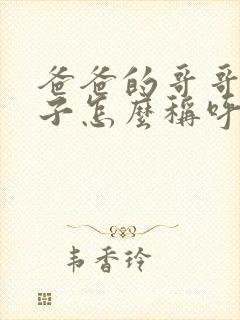 爸爸的哥哥
子怎麼稱呼
韦香玲